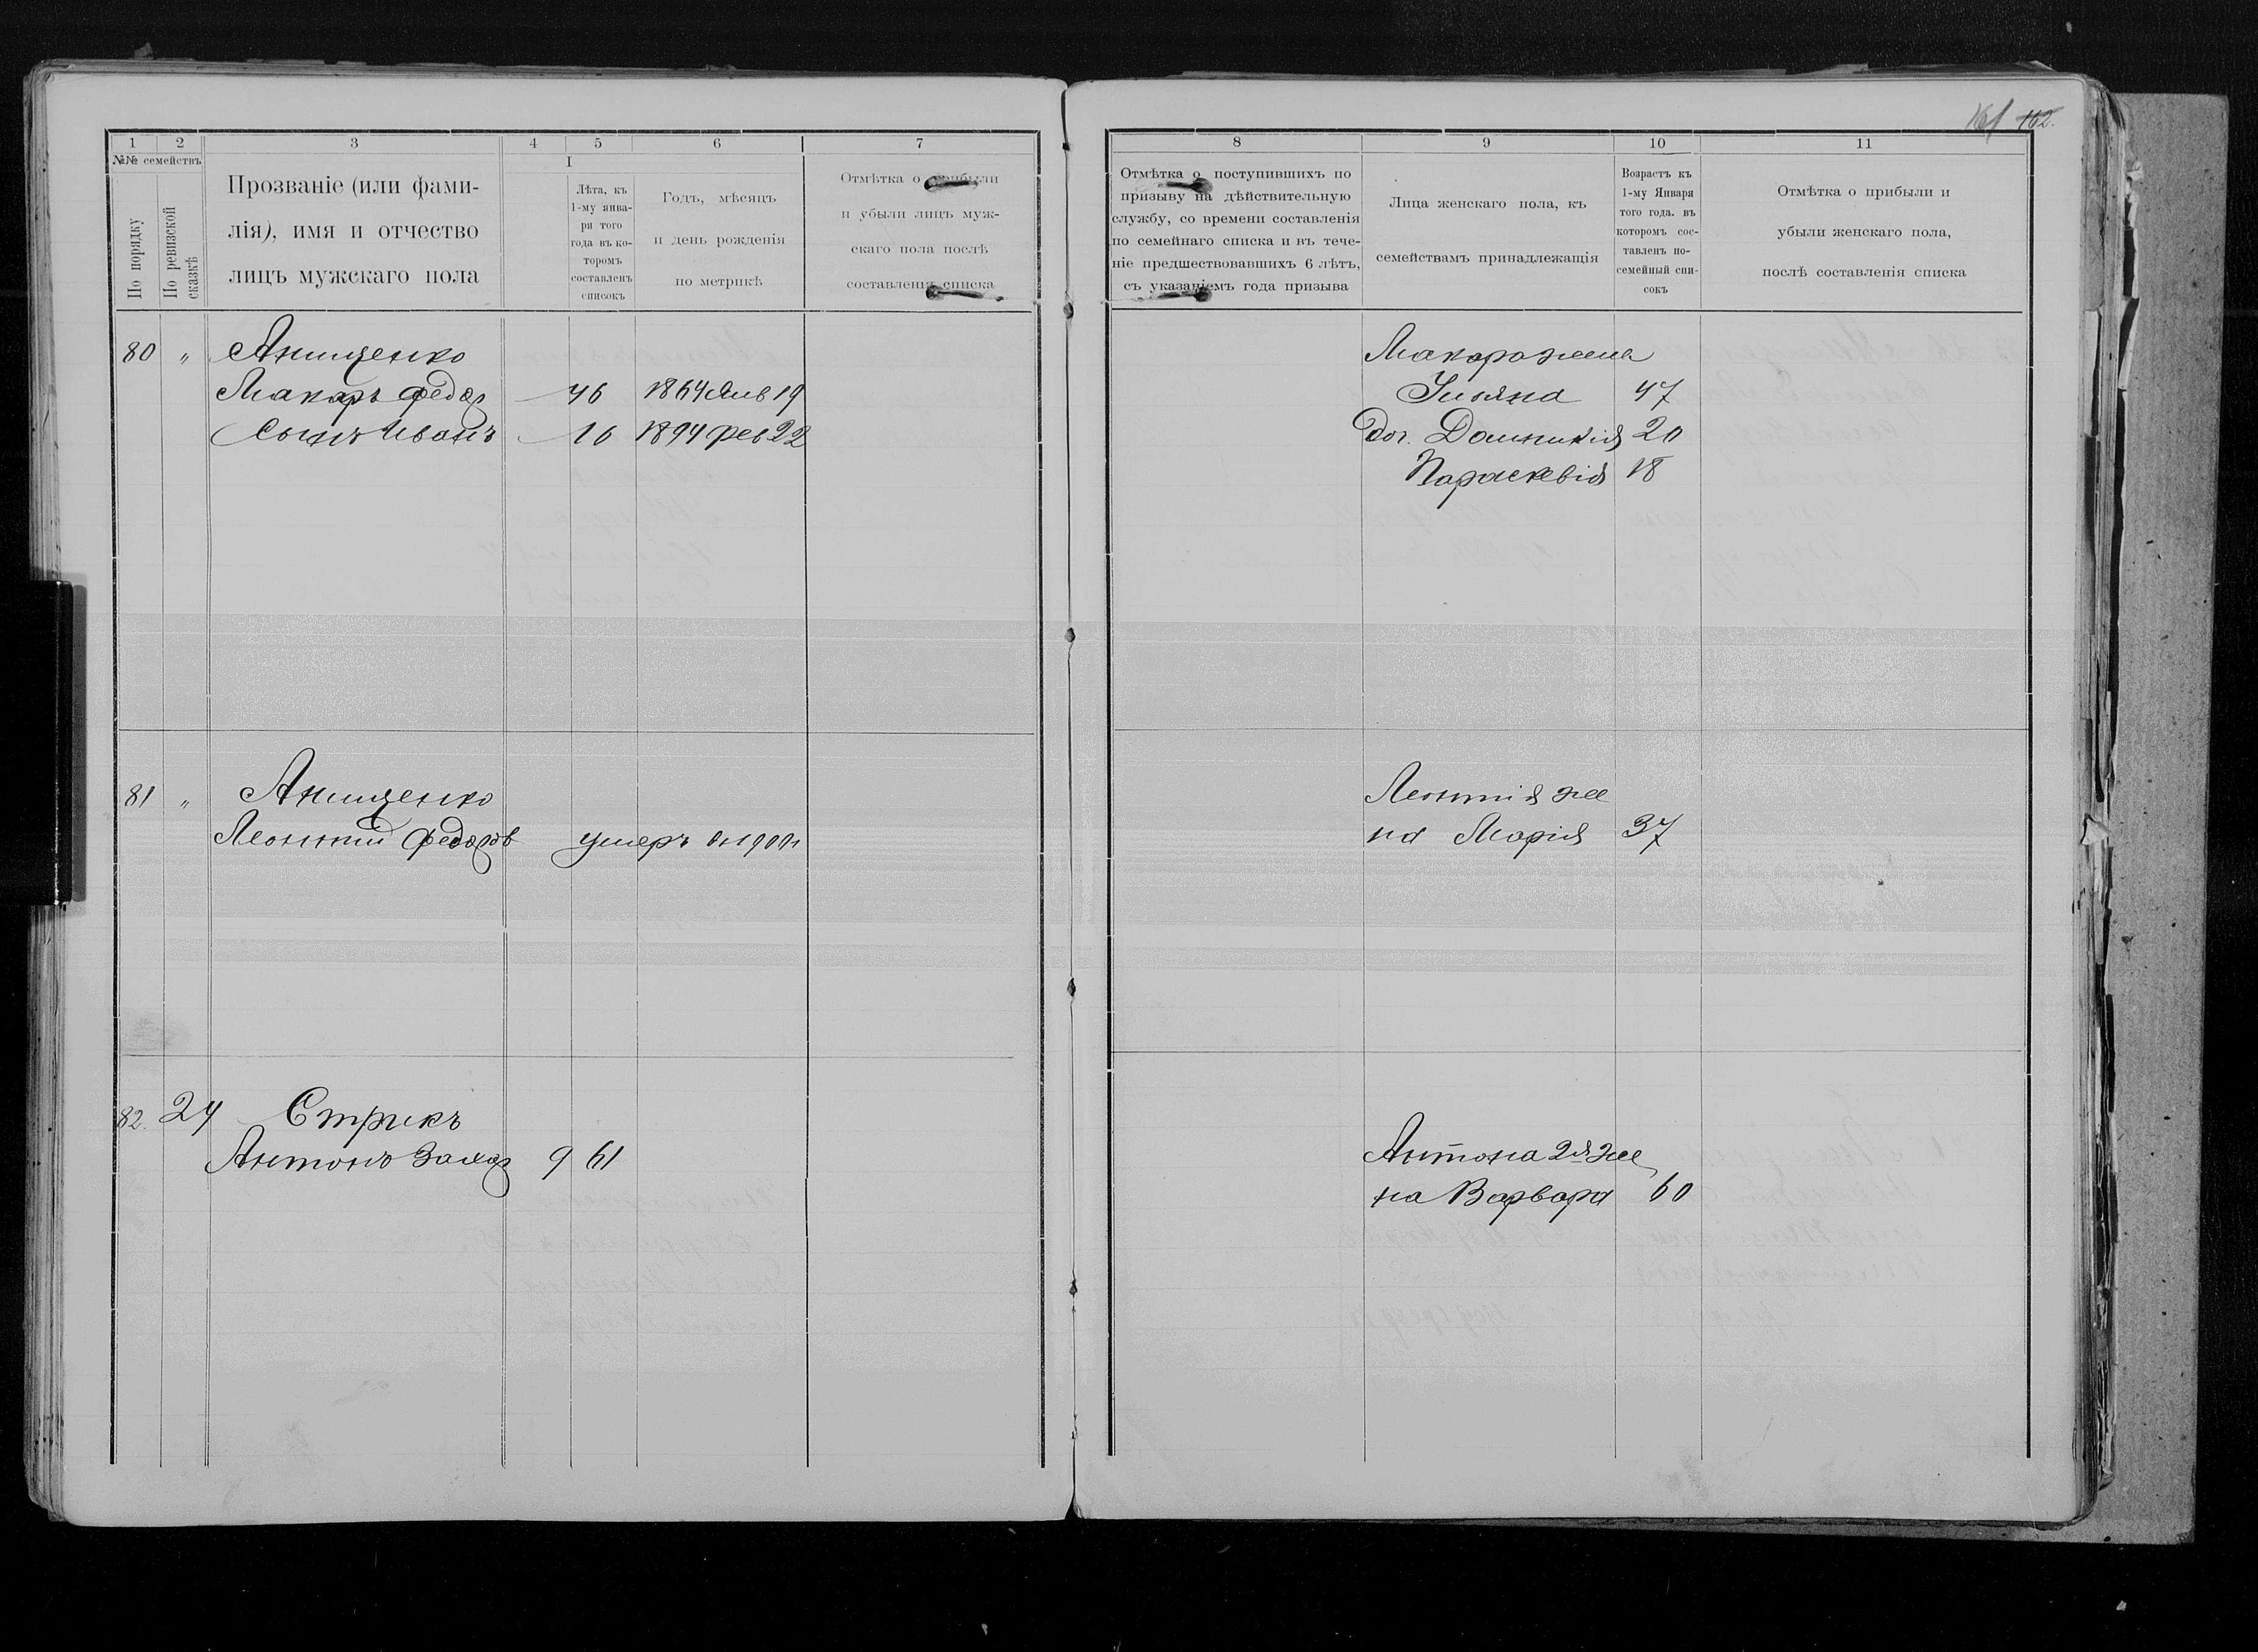 1 2 3 4 5 6 7
№№ семействъ
По порядку
По ревизской сказкѣ
Прозваніе (или фами-
лія), имя и отчество
лицъ мужскаго пола
I
Лѣта, къ
1-му янва-
ря того
года въ ко-
торомъ
составленъ
списокъ
Годъ, мѣсяцъ
и день рожденія
по метрикѣ
Отмѣтка о прибыли
и убыли лицъ муж-
скаго пола послѣ
составленія списка
80 „ Анищенко
Макаръ Федор 46 1864 Янв 19
Сынъ Иванъ 16 1894 фев 22
81 „ Анищенко
Леонтій Федоров умеръ
82. 24 Стрикъ
Антонъ Захар 9 61
161 162.
8 9 10 11
Отмѣтка о поступившихъ по
призыву на дѣйствительную
службу, со времени составленія
по семейнаго списка и въ тече-
ніе предшествовавшихъ 6 лѣтъ,
съ указаніемъ года призыва
Лица женскаго пола, къ
семействамъ принадлежащія
Возрастъ къ
1-му Января
того года. въ
которомъ сос-
тавленъ по-
семейный спи-
сокъ
Отмѣтка о прибыли и
убыли женскаго пола,
послѣ составленія списка
Макара жена
Ульяна 47
доч. Домникія 20
Параскевія 18
Леонтія же
на Марія 37
Антона 2я же
на Варвара 60